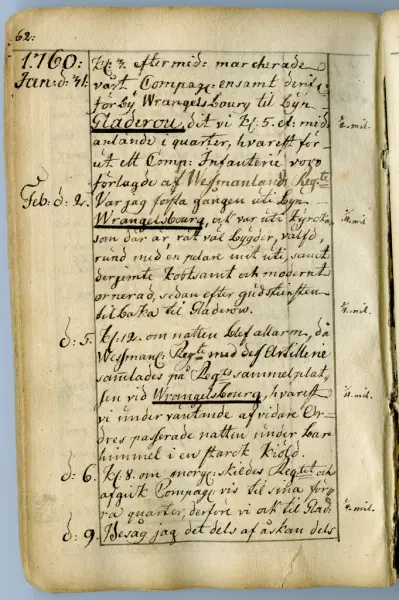 62:
1760: kl. 3. eftermid: marcherade
Jan: d: 31. vårt Compag: ensamt derif:
från By Wrangelsbourg til Byn
Gladerou, dit vi kl: 5. ef: mid:
anlände i quarter, hvarest för- ½. mil.
ut ett Comp: Infanterie voro
förlagde af Wesmanlands Regte
Feb: d: 2. Var jag första gången uti Byn
Wrangelsbourg, ock var uti kyrckan ¼. mil
som där är rätt väl bygder, välfd,
rund med en pelare mit uti, samt
derjemte kostsamt ock modernt
ornerad, sedan efter gudstiensten
tilbaka til Gladerow. ¼. mil.
d: 5. kl: 12. om natten blef allarm, då
Wesmanl: Regte med dess Artillerie
samlades på Regts sammelplat-
sen vid Wrangelsbourg, hvarest ¼. mil.
vi under väntande af vidare Or-
dres passerade natten under bar
himmel i en starck kiöld.
d: 6. kl: 8. om morg: skildes Regtet ock
afgick Compagc vis til sina förr-
ra quarter, derföre vi ock til Glad: ¼. mil.
d: 9. Besåg jag det dels af åskan dels